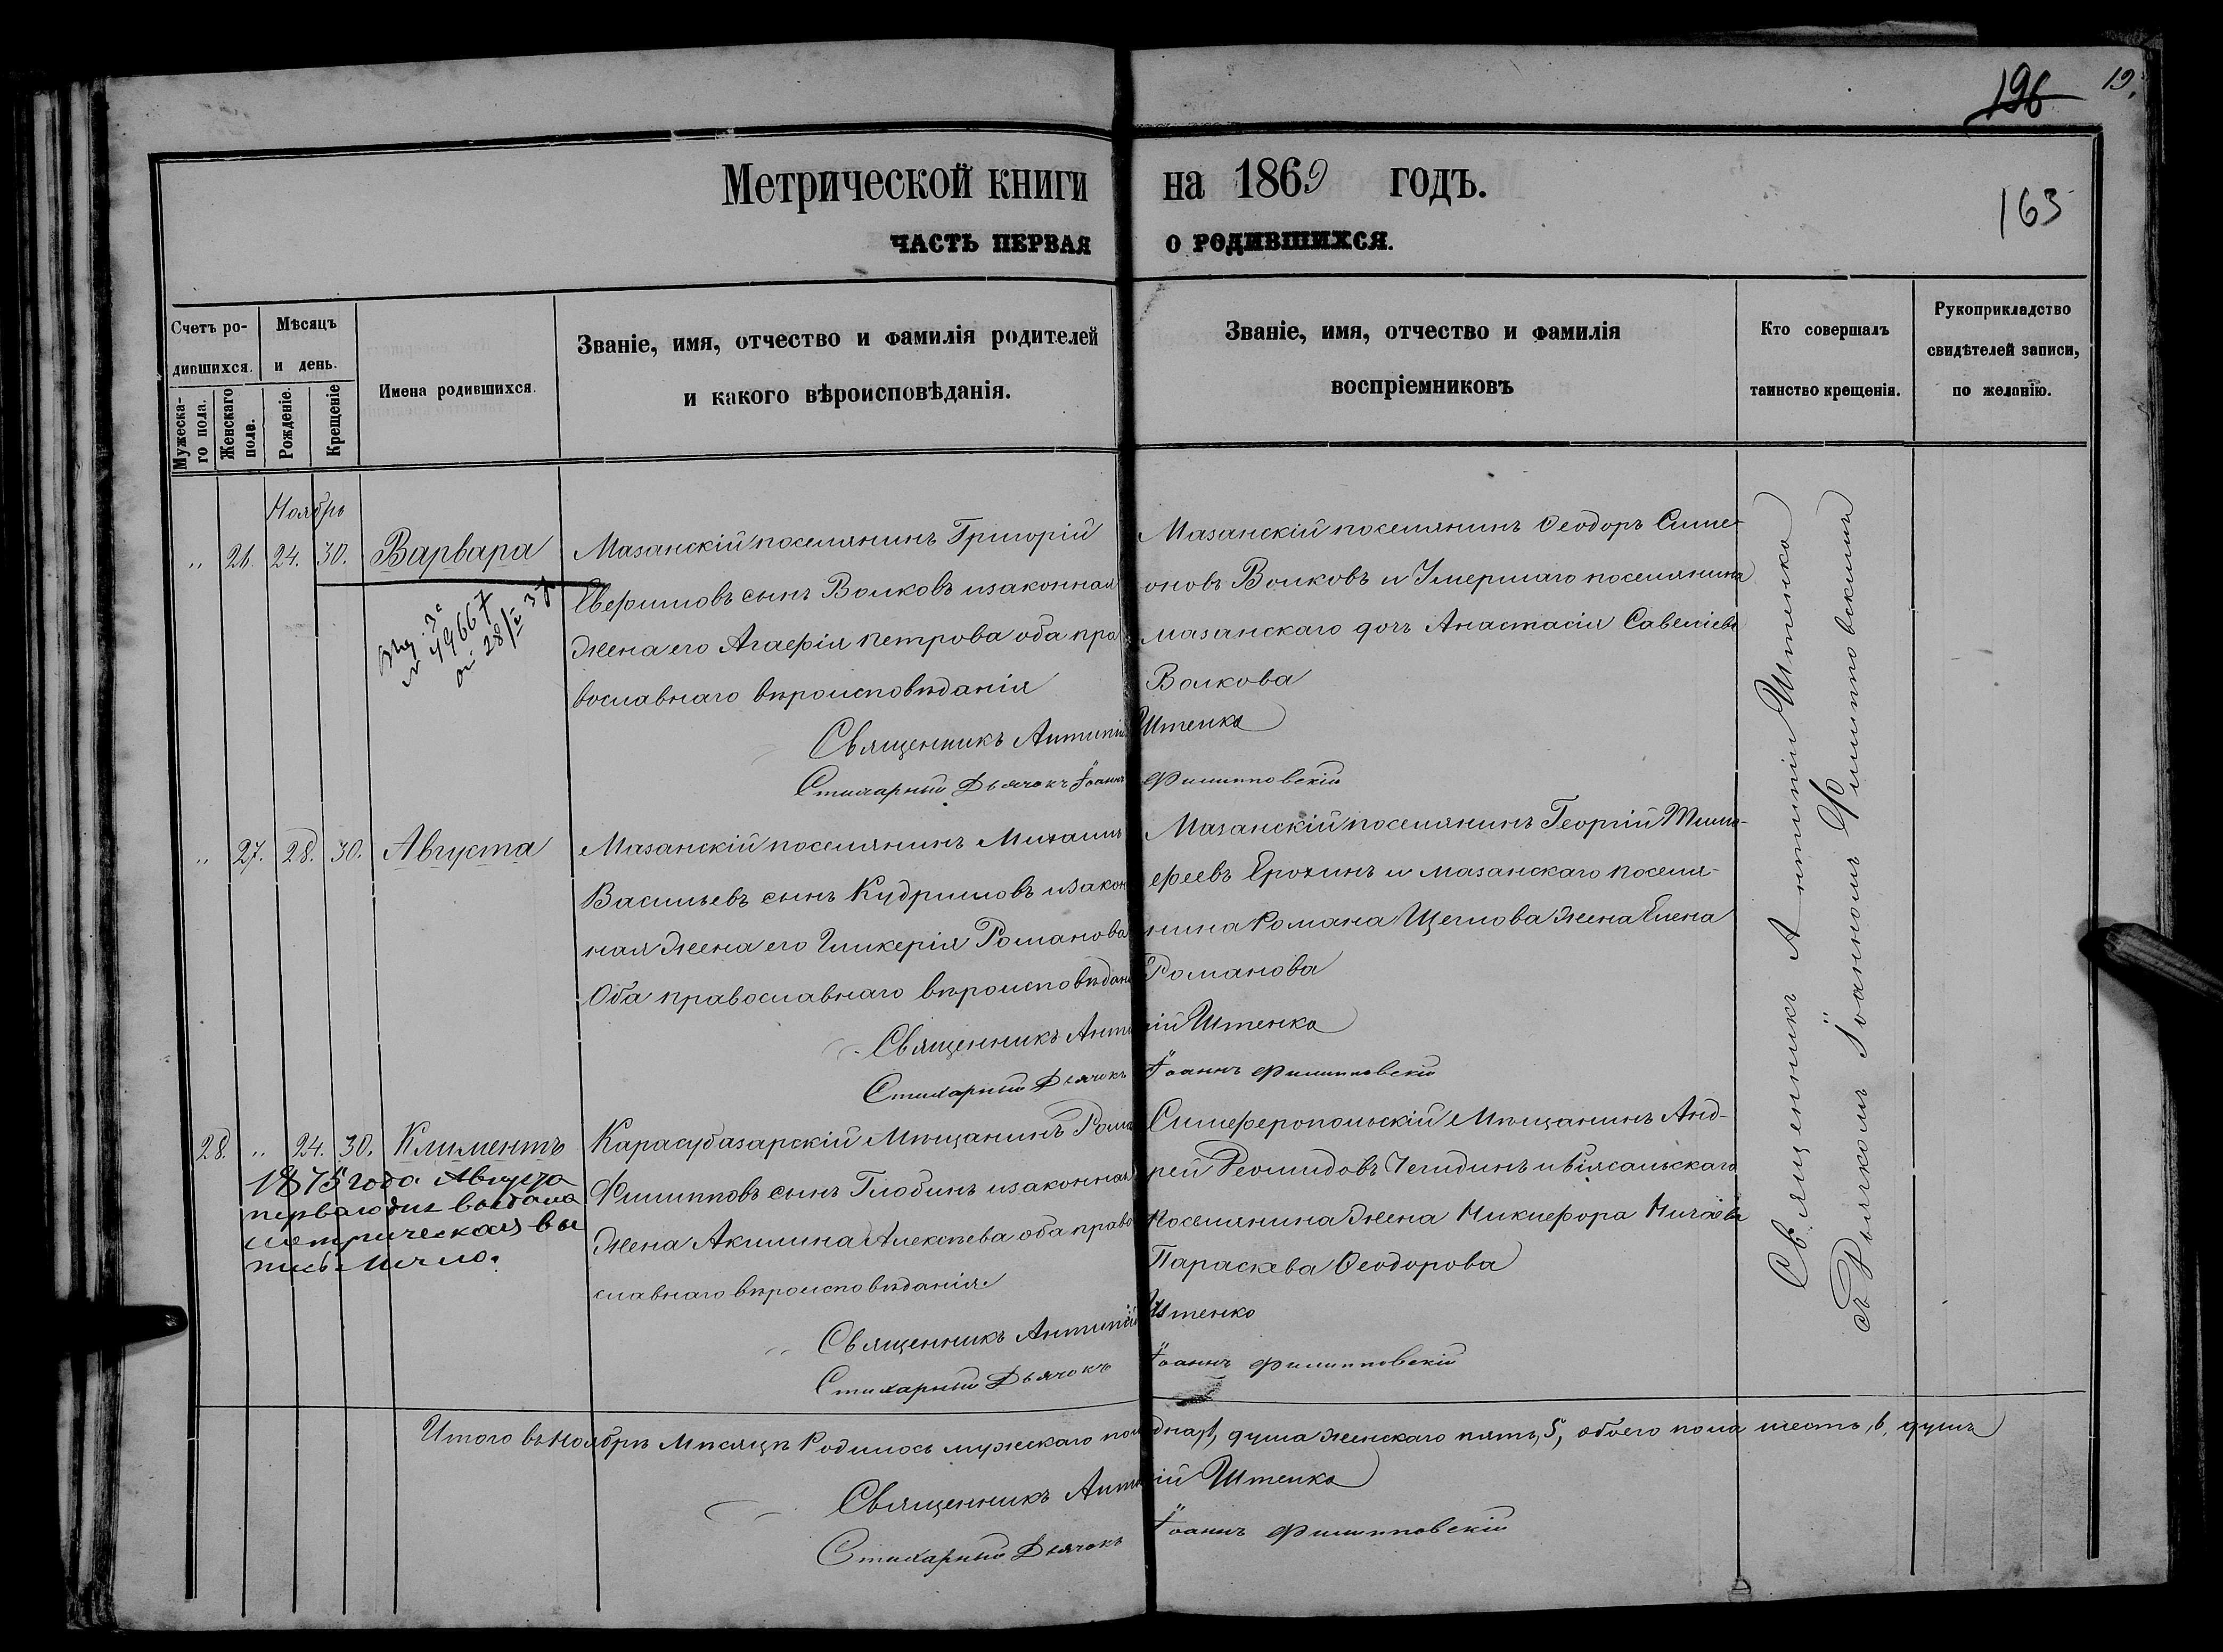 196
19
Метрической книги на 1869 годъ.
163
ЧАСТЬ ПЕРВАЯ О РОДИВШИХСЯ.
Счетъ родившихся.
Мужескаго пола.
Женскаго пола.
Мѣсяцъ и день.
Рожденіе.
Крещеніе
Имена родившихся.
Званіе, имя, отчество и фамилія родителей
и какого вѣроисповѣданія.
Званіе, имя, отчество и фамилія
воспріемниковъ
Кто совершалъ
таинство крещенія.
Рукоприкладство
свидѣтелей записи,
по желанію.
Ноябрь
„ 26. 24. 30. Варвара
49667
28
37
Мазанскій поселянинъ Григорій
Евфимовъ сынъ Волковъ изаконная
жена его Агафія Петрова оба пра
вославнаго вѣроисповѣданія
Мазанскій поселянинъ Ѳеодоръ Симе-
оновъ Волковъ и Умершаго поселянина
мазанскаго дочь Анастасія Савеліева
Волкова
Священникъ Антипій Штенко
Стихарный Дьячокъ Іоаннъ Филипповскій
„ 27. 28. 30. Августа
Мазанскій поселянинъ Михаилъ
Васильевъ сынъ Кудриловъ изакон
ная жена его Гликерія Романова
Оба православнаго вѣроисповѣдані
Мазанскій поселянинъ Георгій Тимо-
феевъ Ерохинъ и мазанскаго поселя-
нина Романа Щеглова жена Елена
Романова
Священникъ Антипій Штенко
Стихарный Дьячокъ Іоаннъ Филипповскій
28. „ 24. 30. Климентъ
1875 года Августа
перваго дня выдана
метрическая вы
пись
Карасубазарскій Мѣщанинъ Рома
Филипповъ сынъ Глобинъ изаконная
жена Акилина Алексѣева оба право
славнаго вѣроисповѣданія.
Симферопольскій Мѣщанинъ Анд-
рей Леонидовъ Чегидинъ и Біясальскаго
Поселянина жена Никифора Ничаева
Параскева Ѳеодорова
Священникъ Антипій Штенко
Стихарный Дьячокъ Іоаннъ Филипповскій
Священникъ Антипій Штенко
съ Дьячкомъ Іоанномъ Филипповскимъ
Итого въ Ноябрѣ Мѣсяцѣ Родилось мужескаго пола одна, 1, душа женскаго пять, 5, обоего пола шесть, 6, душъ
Священникъ Антипій Штенко
Стихарный Дьячокъ Іоаннъ Филипповскій